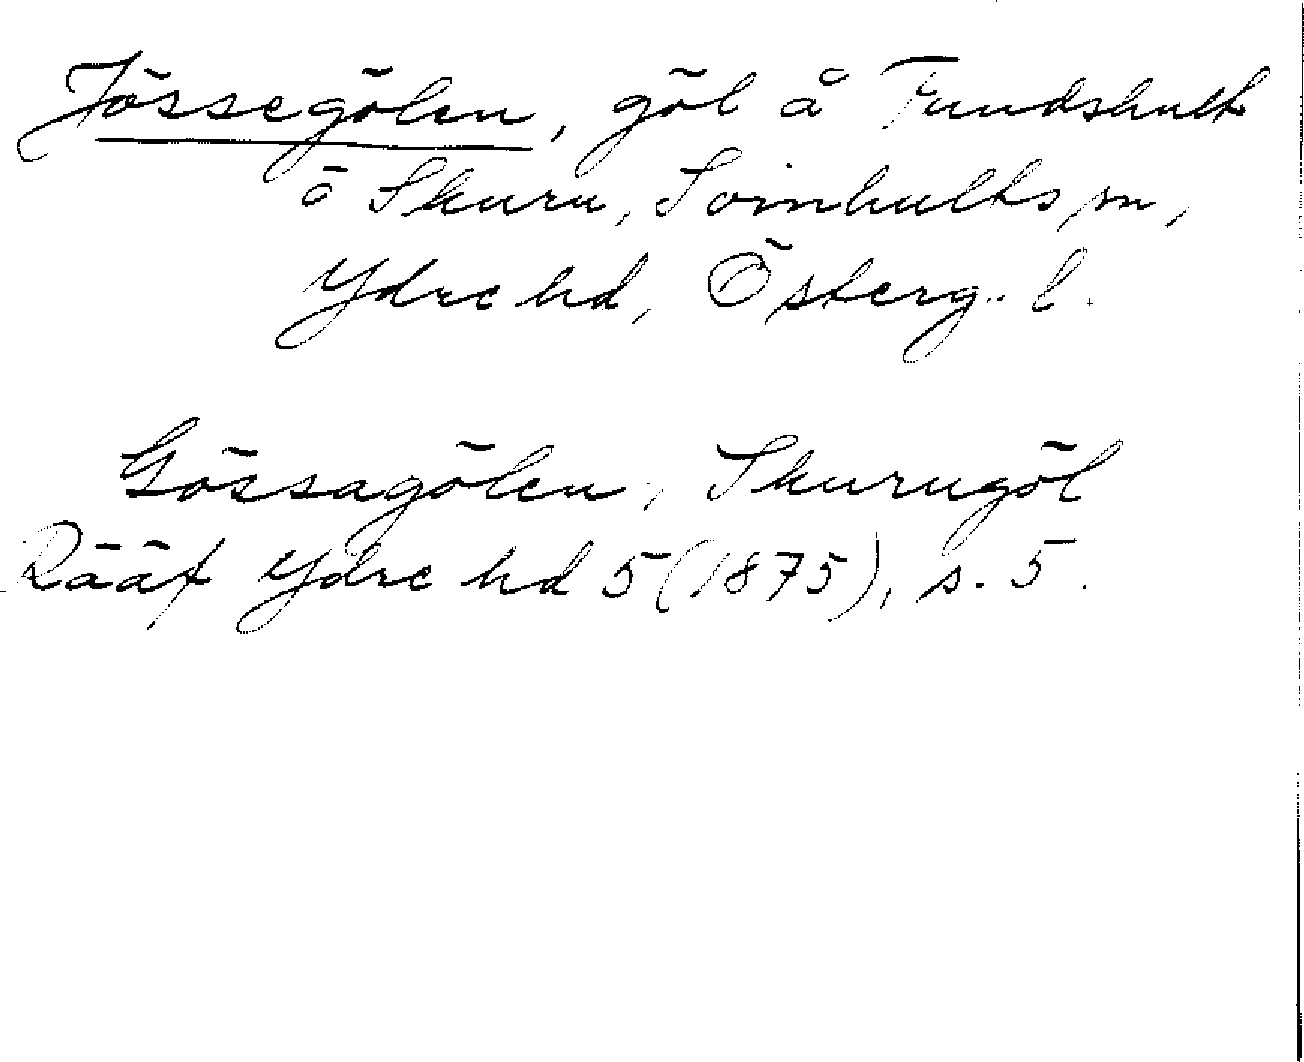 Jössegölen, göl å Fundshult
o Skuru, Svinhults sn,
Ydre hd, Österg. l.
Gössagölen, Skurugöl
Rääf Ydre hd 5 (1875), s. 5.